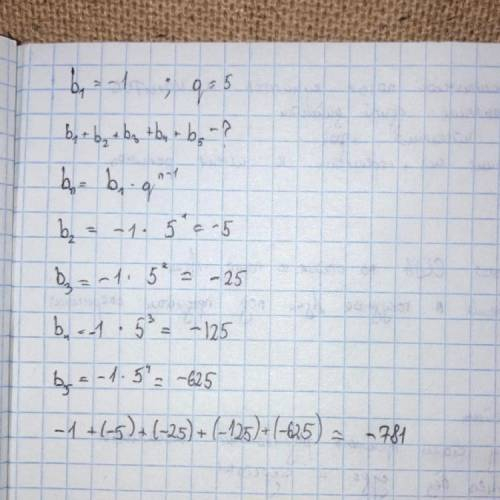 b₁ = -1 ; q = 5
b₁ + b₂ + b₃ + b₄ + b₅ - ?
bₙ = b₁ · qⁿ⁻¹
b₂ = -1 · 5¹ = -5
b₃ = -1 · 5² = -25
b₄ = -1 · 5³ = -125
b₅ = -1 · 5⁴ = -625
-1 + (-5) + (-25) + (-125) + (-625) = -781